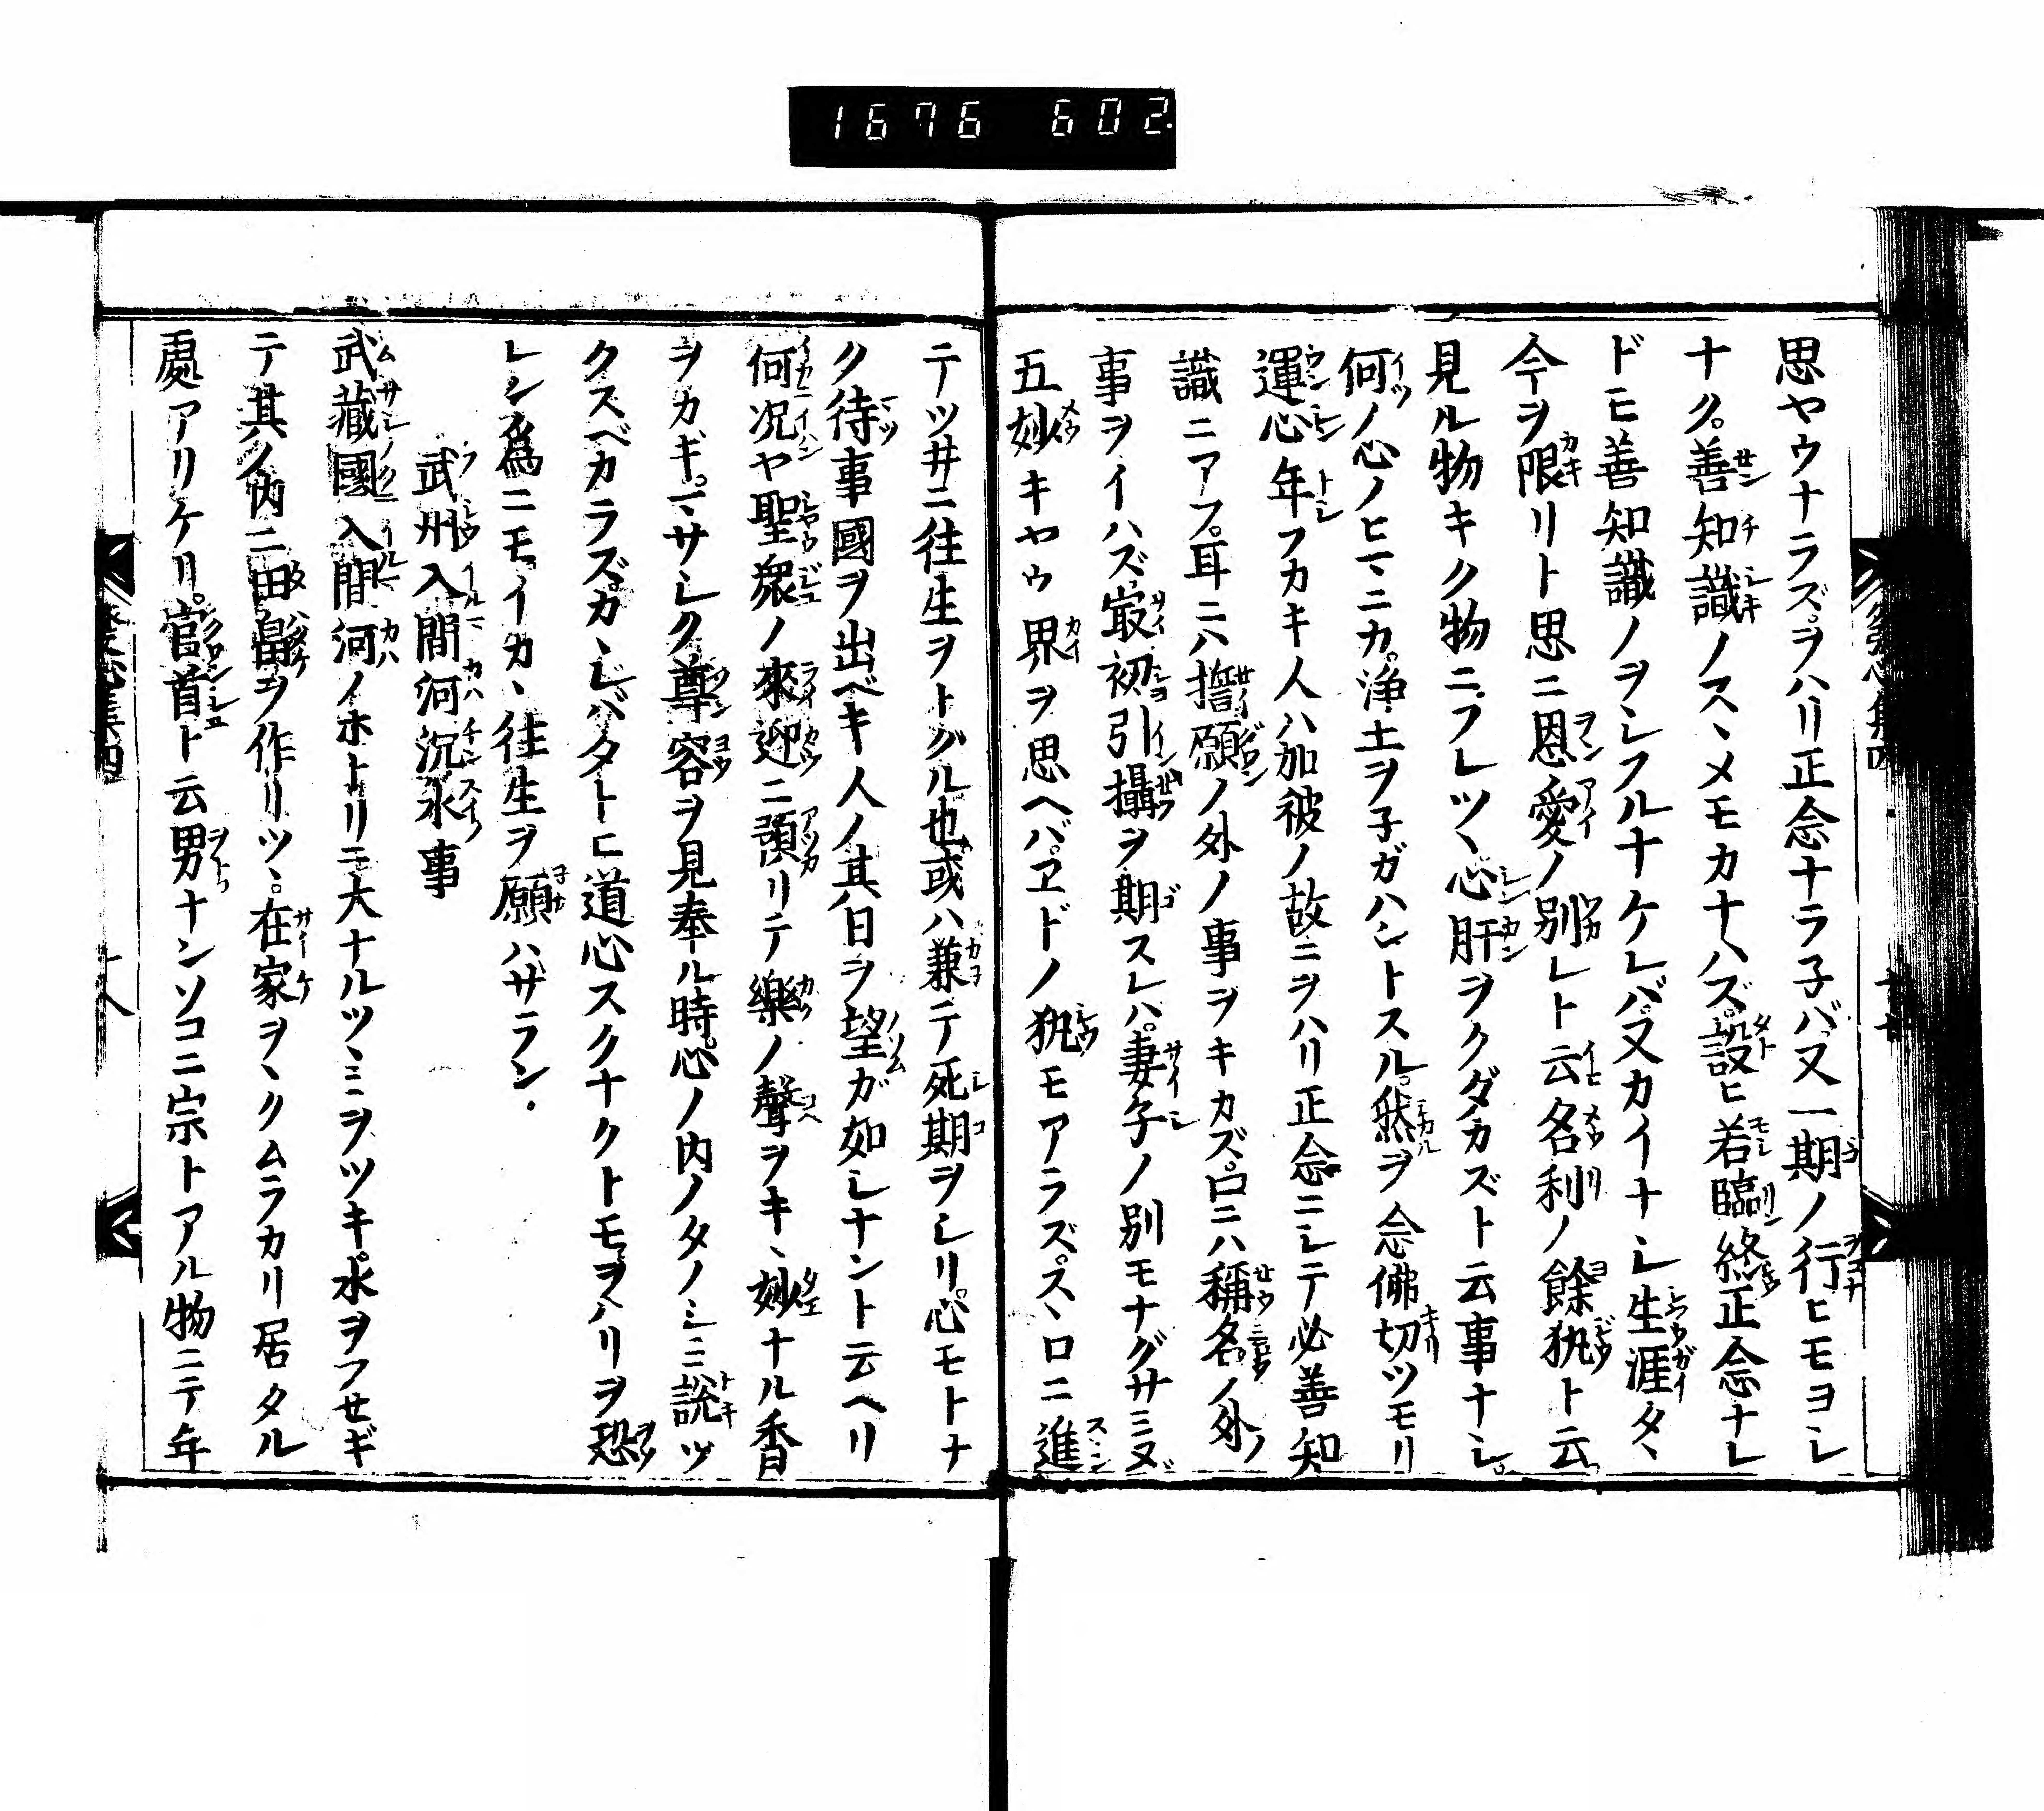 1676 602.
思ヤウナラズ。ヲハリ正念ナラ子バ。又一期ノ行ヒモヨシ
ナク。善知識ノスヽメモカナハズ。設ヒ若臨終正念ナレ
ドモ善知識ノヲシフルナケレバ。又カイナシ。生涯タヽ
今ヲ限リト思ニ恩愛ノ別レト云名利ノ餘執ト云
見ル物キク物ニフレツヽ心肝ヲクダカズト云事ナシ。
何ノ心ノヒマニカ。浄土ヲ子ガハントスル。然ヲ念佛切ツモリ
運心年フカキ人ハ加被ノ故ニヲハリ正念ニシテ必善知
識ニアフ。耳ニハ誓願ノ外ノ事ヲキカズ。口ニハ稱名ノ外ノ
事ヲイハズ。最初引攝ヲ期スレハ。妻子ノ別モナグサミヌ
五妙キヤウ界ヲ思ヘバ。ヱドノ執モアラズ。スヽロニ進
テツ井ニ往生ヲトグル也。或ハ兼テ死期ヲシリ。心モトナ
ク待事國ヲ出ベキ人ノ其日ヲ望ガ如シナント云ヘリ
何况ヤ聖衆ノ來迎ニ預リテ樂ノ聲ヲキヽ妙ナル香
ヲカギ。マサシク尊容ヲ見奉ル時。心ノ内ノタノシミ説ツ
クスベカラズ。カヽレバタトヒ道心スクナクトモ。ヲハリヲ恐
レシ爲ニモ。イカヽ往生ヲ願ハザラン。
武州入間河沉水事
武藏國入間河ノホトリニ大ナルツヽミヲツキ。水ヲフセギ
テ其ノ内ニ田畠ヲ作リツヽ。在家ヲヽクムラカリ居タル
處アリケリ。官首ト云男ナンソコニ宗トアル物ニテ年